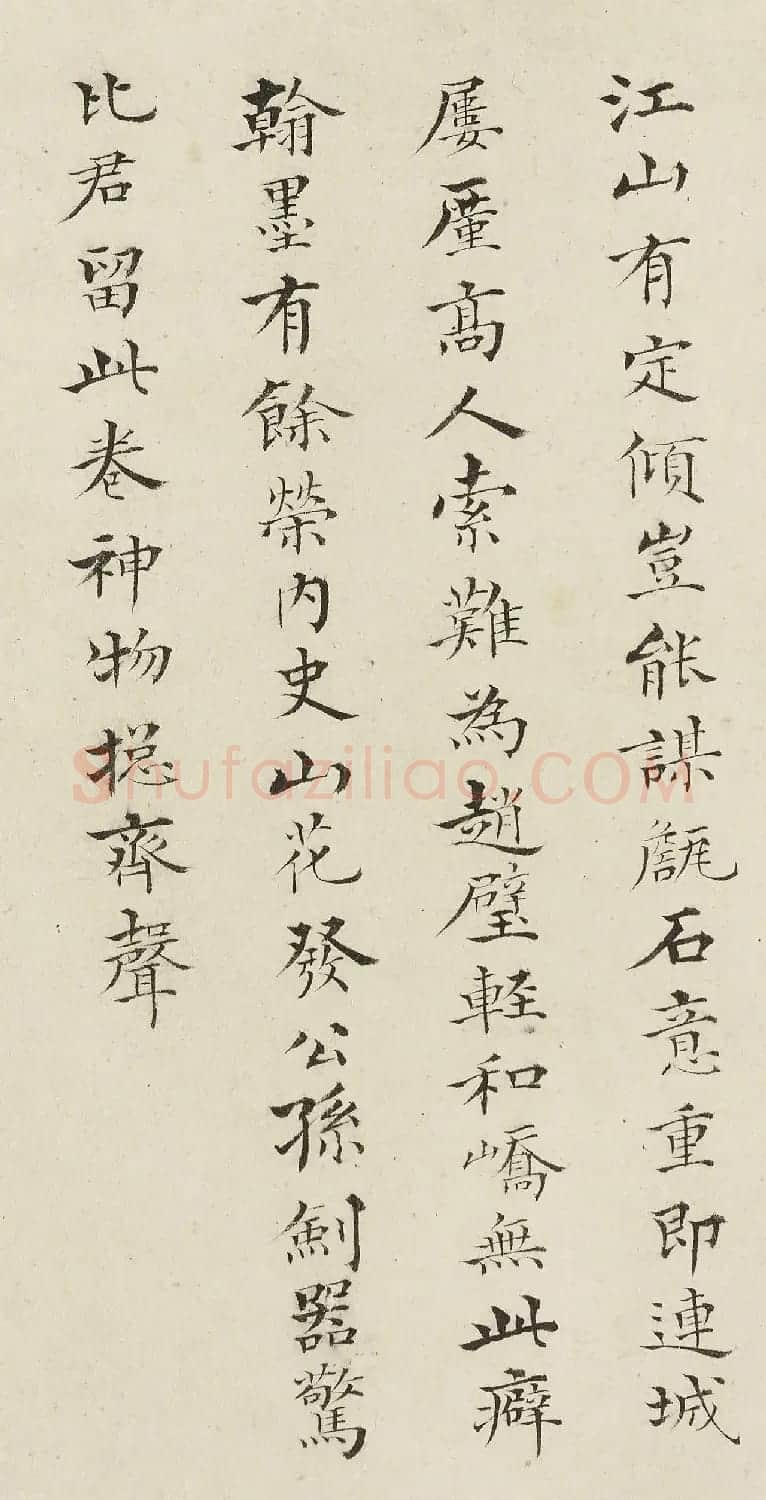 江山有定傾豈能謀甔石意重即連城
屢厪高人索難為趙璧輕和嶠無此癖
翰墨有餘榮内史山花發公孫劍器驚
比君留此卷神物揔齊聲
Shufaziliao.COM